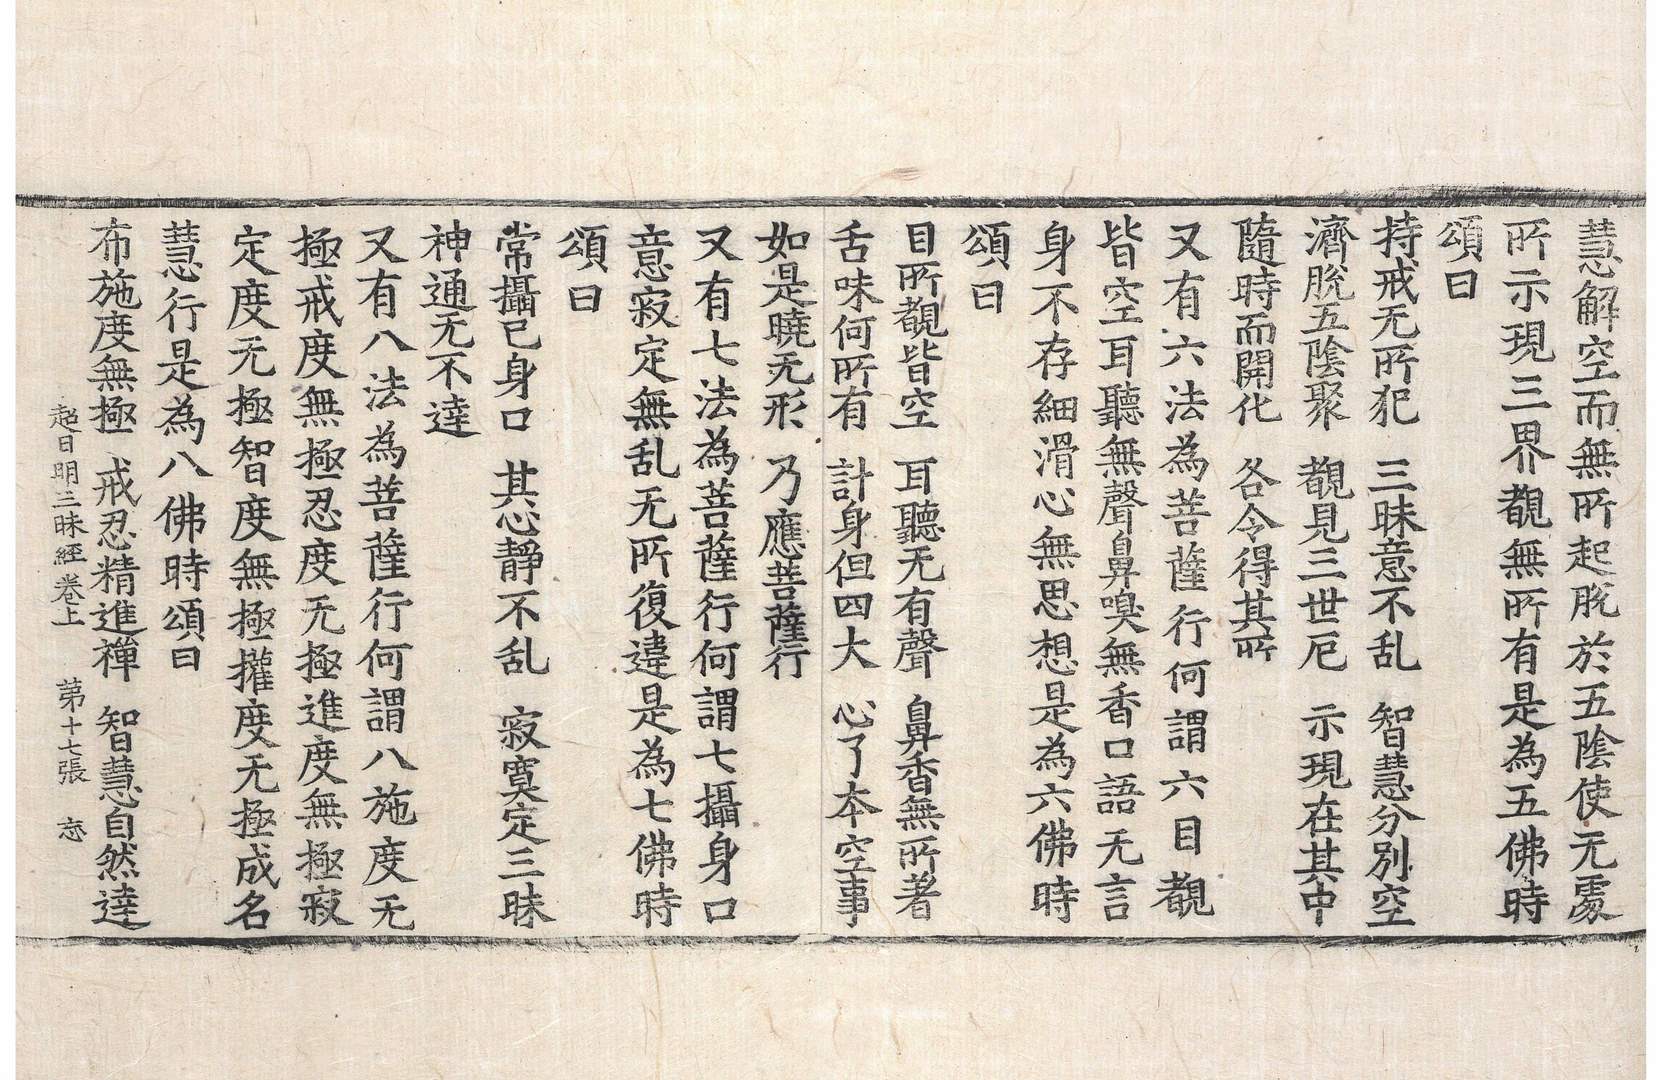 慧解空而無所起脫於五陰使无處
所示現三界覩無所有是為五佛時
頌曰
持戒无所犯　三昧意不乱　智慧分別空
濟脫五陰聚　覩見三世厄　示現在其中
隨時而開化　各令得其所
又有六法為菩薩行何謂六目覩
皆空耳聽無聲鼻嗅無香口語无言
身不存細滑心無思想是為六佛時
頌曰
目所覩皆空　耳聽无有聲　鼻香無所著
舌味何所有　計身但四大　心了本空事
如是曉无形　乃應菩薩行
又有七法為菩薩行何謂七攝身口
意寂定無乱无所復違是為七佛時
頌曰
常攝己身口　其心靜不乱　寂寞定三昧
神通无不達
又有八法為菩薩行何謂八施度无
極戒度無極忍度无極進度無極寂
定度无極智度無極攉度无極成名
慧行是為八佛時頌曰
布施度無極　戒忍精進禪　智慧自然達
超日明三昧經卷上　第十七張　忘